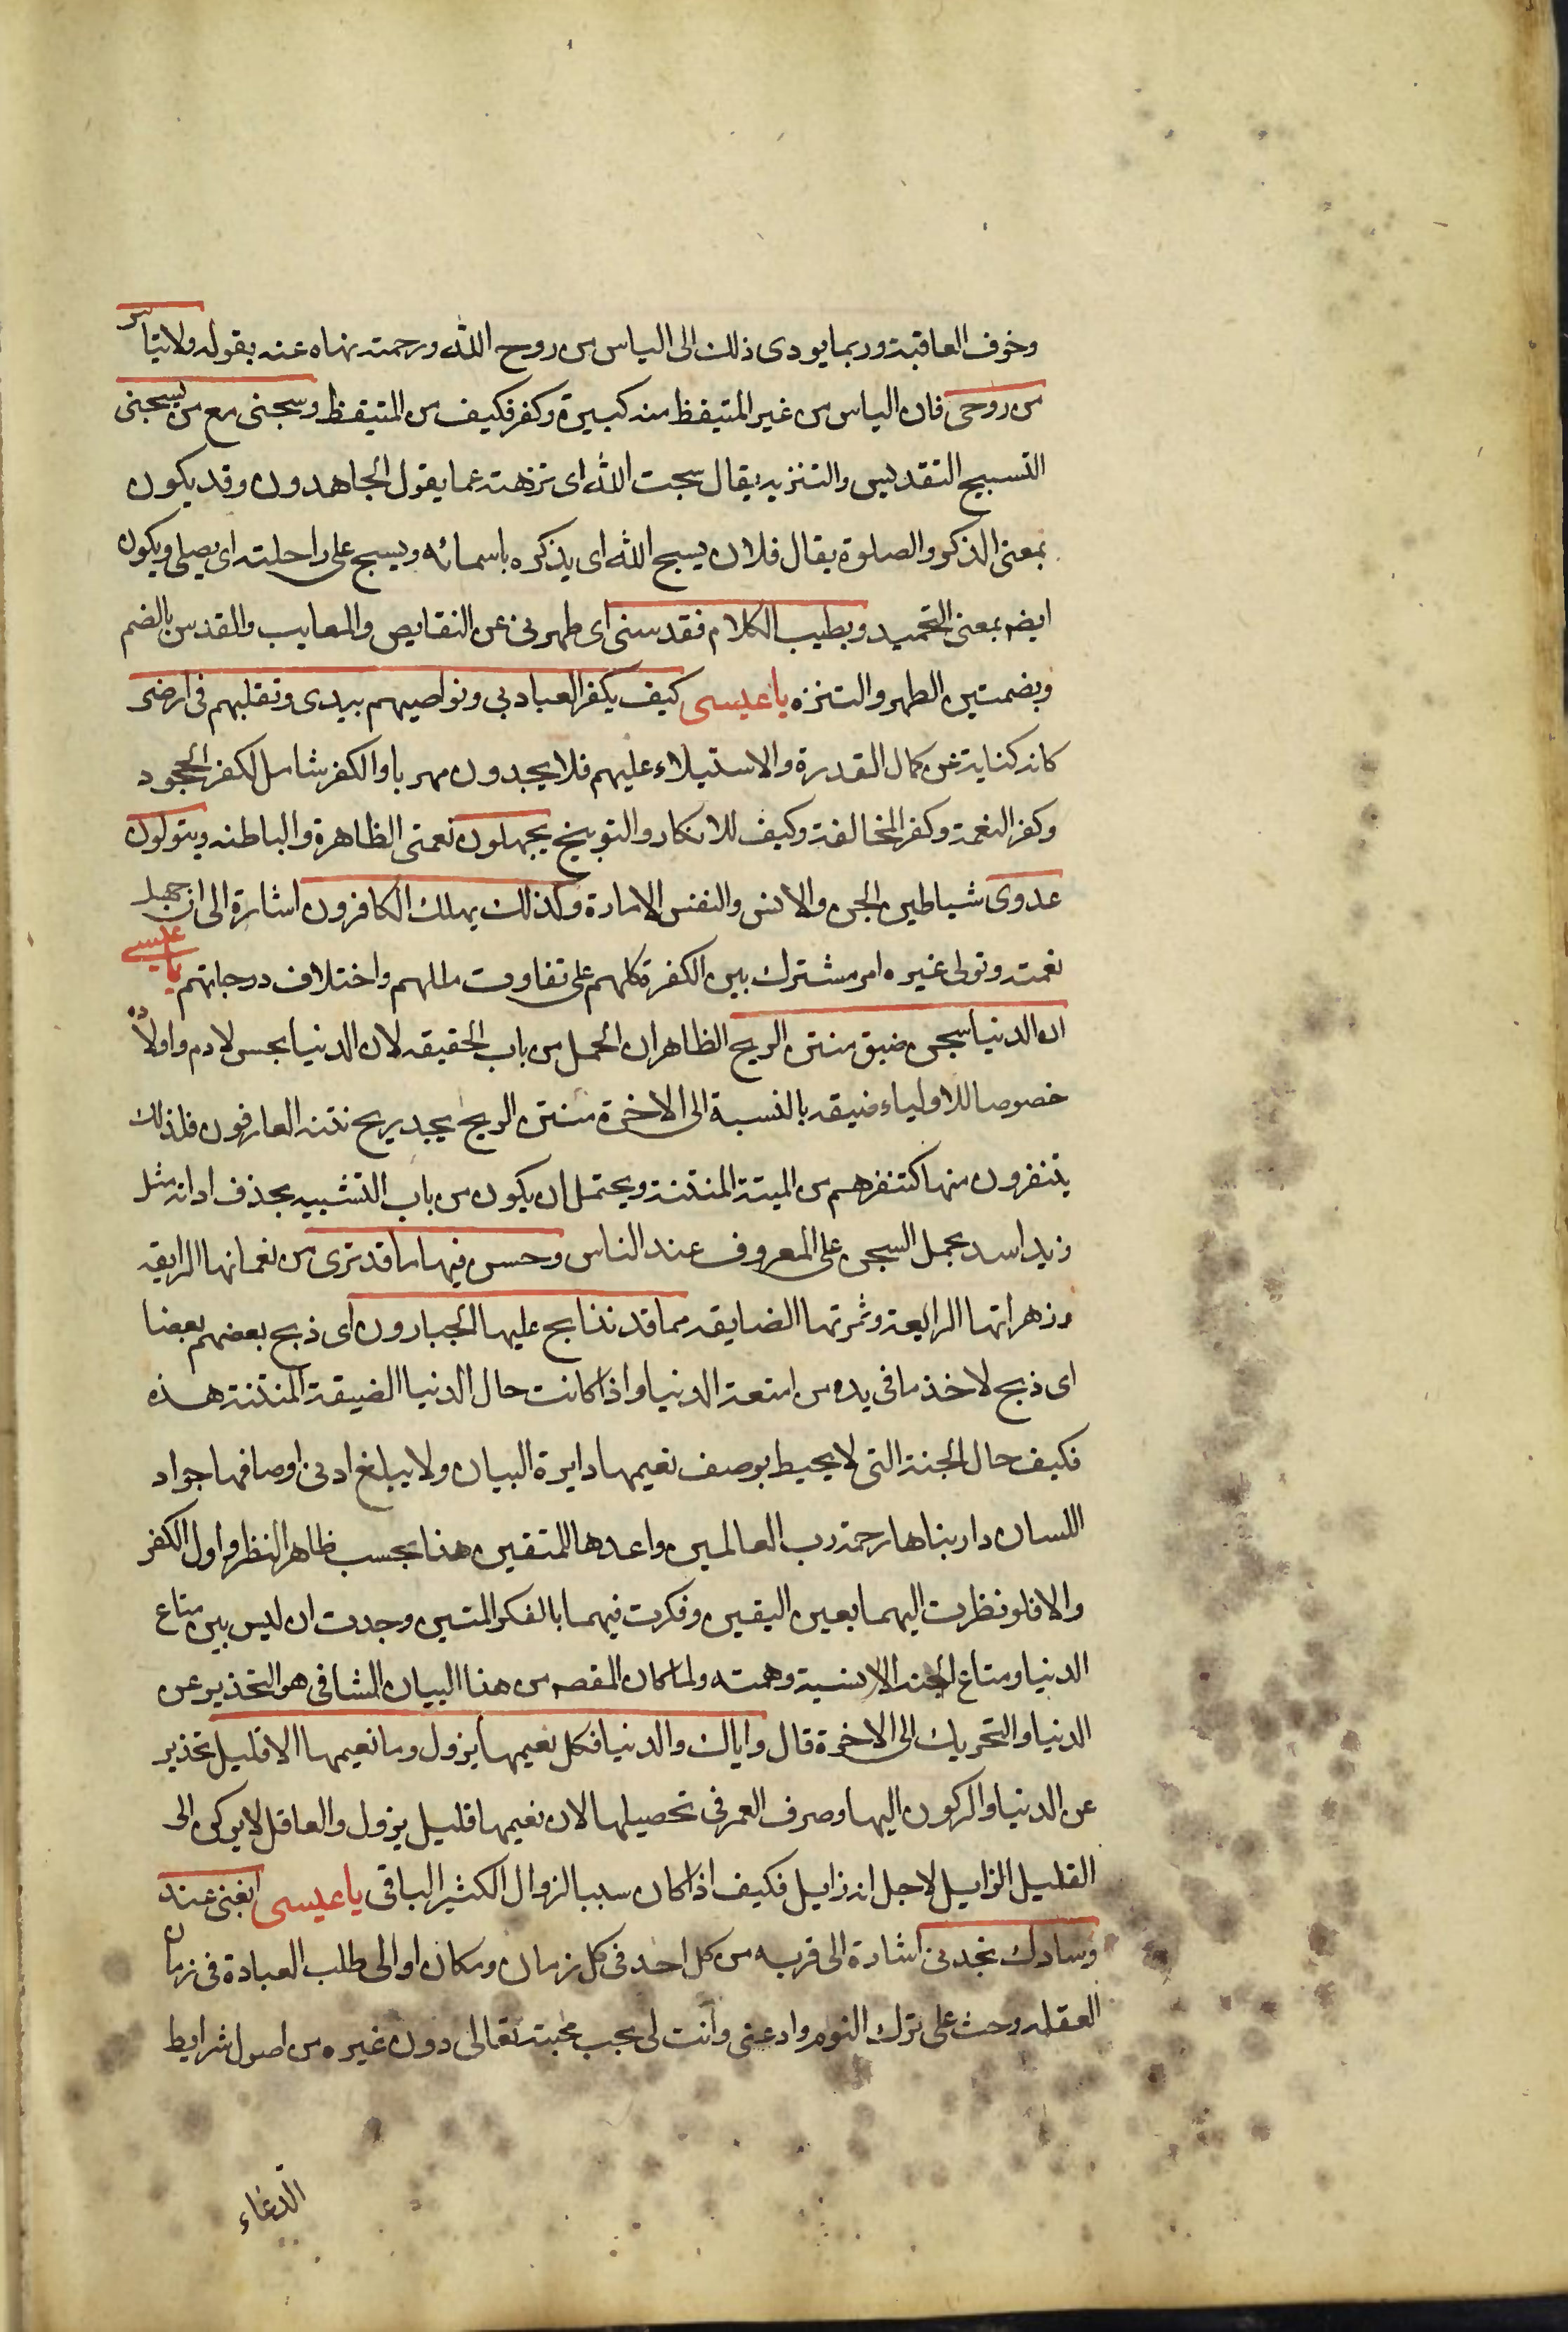 وخوف العاقبة وربما يودى ذلك الى الياس من روح الله ورحمته نهاه عنه بقوله ولا تياس
من روحى فان الياس من غير المتيقظ منه كبيرة وكفر فكيف من المتيقظ وسبحنى مع من يسبحنى
التسبيح التقديس والتنزيه يقال سبحت الله اى نزهته عما يقول الجاهدون وقد يكون
بمعنى الذكر والصلوة يقال فلان يسبح الله اى يذكره باسمائه ويسبح على راحلته اى يصلى ويكون
ايضه بمعنى التحميد وبطيب الكلام فقدسنى اى طهرنى عن النقايص والمعايب والقدس بالضم
وبضمتين الطهر والتنزه يا عيسى كيف يكفر العباد بى ونواصيهم بيدى وتقلبهم فى ارضى
كانه كناية عن كمال القدرة والاستيلاء عليهم فلا يجدون مهربا والكفر شامل لكفر الجحود
وكفر النعمة وكفر المخالفة وكيف للانكار والتوبيخ يجهلون نعمتى الظاهرة والباطنه ويتولون
عدوى شياطين الجن والانس والنفس الامارة وكذلك يهلك الكافرون اشارة الى ان جهل
نعمته وتولى غيره امر مشترك بين الكفرة كلهم على تفاوت مللهم واختلاف درجاتهم يا عيسى
ان الدنيا سجن ضيق منتن الريح الظاهر ان الحمل من باب الحقيقه لان الدنيا محبس لادم واولاده
خصوصا للاولياء ضيقه بالنسبة الى الاخرة منتن الريح يجد ريح نتنه العارفون فلذلك
يتنفرون منها كتنفرهم من الميتة المنتنة ويحتمل ان يكون من باب التشبيه بحذف اداته مثل
زيد اسد بحمل السجن على المعروف عند الناس وحسن فيها ما قد ترى من نعمائها الرايقه
وزهراتها الرايعة وثمرتها الضايقه مما قد تذابح عليها الجبارون اى ذبح بعضهم بعضا
اى ذبح لاخذ ما فى يده من امتعة الدنيا واذا كانت حال الدنيا الضيقة المنتنة هذه
فكيف حال الجنة التى لا يحيط بوصف نعيمها دايرة البيان ولا يبلغ ادنى اوصافها جواد
اللسان دار بناها رحمة رب العالمين واعدها للمتقين هذا بحسب ظاهر النظر واول الكفر
والا فلو نظرت اليهما بعين اليقين وفكرت فيهما بالفكر المتين وجدت ان ليس بين متاع
الدنيا ومتاع الجنه الا نسبة وهمته ولما كان المقصه من هذا البيان الشافى هو التحذير عن
الدنيا والتحريك الى الاخرة قال واياك والدنيا فكل نعيمها يزول وما نعيمها الا قليل تحذير
عن الدنيا والركون اليها وصرف العمر فى تحصيلها لان نعيمها قليل يزول والعاقل لا يركن الى
القليل الزايل لاجل انه زايل فكيف اذا كان سببا لزوال الكثير الباقى يا عيسى ابغنى عند
وسادك تجدنى اشارة الى قربه من كل احد فى كل زمان ومكان او الى طلب العبادة فى زمان
الغفلة وحث على ترك النوم وادعنى وانت لى محب محبته تعالى دون غيره من اصول شرايط
الدعاء